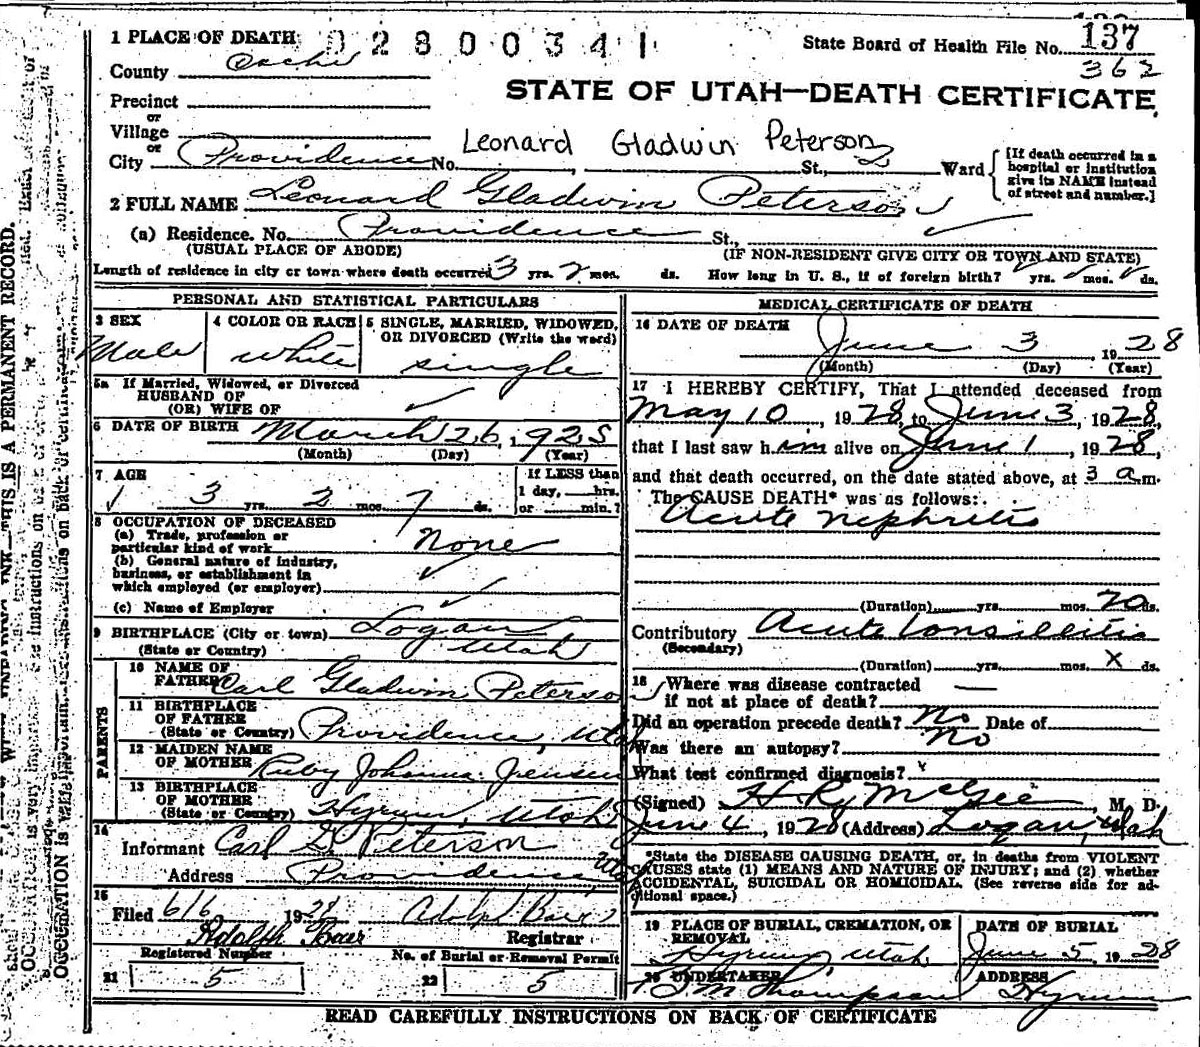 1 PLACE OF DEATH 02800341 State Board of Health File No. 137
County Cache 362
STATE OF UTAH—DEATH CERTIFICATE
Precinct
or
Village
or
Leonard Gladwin Peterson
City Providence No. St., 2 Ward
[If death occurred in a hospital or institution give its NAME instead of street and number.]
2 FULL NAME Leonard Gladwin Peterson
(a) Residence. No. Providence St.,
(USUAL PLACE OF ABODE) (IF NON-RESIDENT GIVE CITY OR TOWN AND STATE)
Length of residence in city or town where death occurred 3 yrs. 2 mos. ds. How long in U. S., if of foreign birth? yrs. mos. ds.
PERSONAL AND STATISTICAL PARTICULARS
3 SEX
Male
4 COLOR OR RACE
White
5 SINGLE, MARRIED, WIDOWED, OR DIVORCED (Write the word)
Single
5a If Married, Widowed, or Divorced
HUSBAND OF
(OR) WIFE OF
6 DATE OF BIRTH March 26, 1925
(Month) (Day) (Year)
7 AGE
3 yrs. 2 mos. 7 ds.
If LESS than
1 day, hrs.
or min.?
8 OCCUPATION OF DECEASED
(a) Trade, profession or
particular kind of work None
(b) General nature of industry,
business, or establishment in
which employed (or employer)
(c) Name of Employer
9 BIRTHPLACE (City or town) Logan
(State or Country) Utah
PARENTS
10 NAME OF
FATHER Carl Gladwin Peterson
11 BIRTHPLACE
OF FATHER
(State or Country) Providence, Utah
12 MAIDEN NAME
OF MOTHER Ruby Johanna Jensen
13 BIRTHPLACE
OF MOTHER
(State or Country) Hyrum, Utah
14
Informant Carl G. Peterson
Address Providence Utah
15
Filed 6/6 1928 Adolph Baer
Adolph Baer Registrar
Registered Number No. of Burial or Removal Permit
21 5 22 5
MEDICAL CERTIFICATE OF DEATH
16 DATE OF DEATH
June 3, 1928
(Month) (Day) (Year)
17 I HEREBY CERTIFY, That I attended deceased from
May 10, 1928, to June 3, 1928,
that I last saw him alive on June 1, 1928,
and that death occurred, on the date stated above, at 3 a.m.
The CAUSE DEATH* was as follows:
Acute nephritis
(Duration) yrs. mos. 20 ds.
Contributory Acute tonsillitis
(Secondary)
(Duration) yrs. mos. X ds.
18 Where was disease contracted
if not at place of death? —
Did an operation precede death? No Date of
Was there an autopsy? No
What test confirmed diagnosis?
(Signed) H. Ry McGee, M. D.
June 4, 1928 (Address) Logan, Utah
*State the DISEASE CAUSING DEATH, or, in deaths from VIOLENT
CAUSES state (1) MEANS AND NATURE OF INJURY; and (2) whether
ACCIDENTAL, SUICIDAL OR HOMICIDAL. (See reverse side for additional space.)
19 PLACE OF BURIAL, CREMATION, OR
REMOVAL
Hyrum, Utah
DATE OF BURIAL
June 5, 1928
20 UNDERTAKER
Thompson
ADDRESS
Hyrum
READ CAREFULLY INSTRUCTIONS ON BACK OF CERTIFICATE
THIS IS A PERMANENT RECORD.